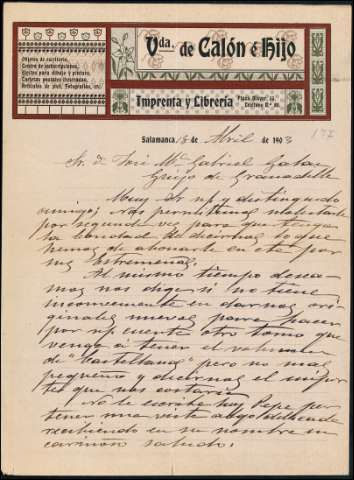 Vda. de Calón é Hijo
Objetos de escritorio.
Centro de suscripciones.
Efectos para dibujo y pintura.
Tarjetas postales
Artículos de piel, Fotografías, etc.
Imprenta y Librería
Plaza Mayor,
Salamanca 18 de Abril de 1903
Sr. D. José Mª Gabriel Galan
Guijo de Granadilla
Muy Sr nº y distinguido
amigo: nos permitimos molestarle
por segunda vez para que tenga
la bondad de decirnos lo que
hemos de abonarle en cta por
sus Extremeñas.
Al mismo tiempo desea-
mos nos diga si no tiene
inconveniente en darnos ori-
ginales nuevos para hacer
por n/ cuenta otro tomo que
venga á tener el volumen
de "Castellanas" pero no mas
pequeño y decirnos el impor-
te que nos costaria
No le escribe hoy Pepe por
tener una vista algo delicada
recibiendo en su nombre un
cariñoso saludo.